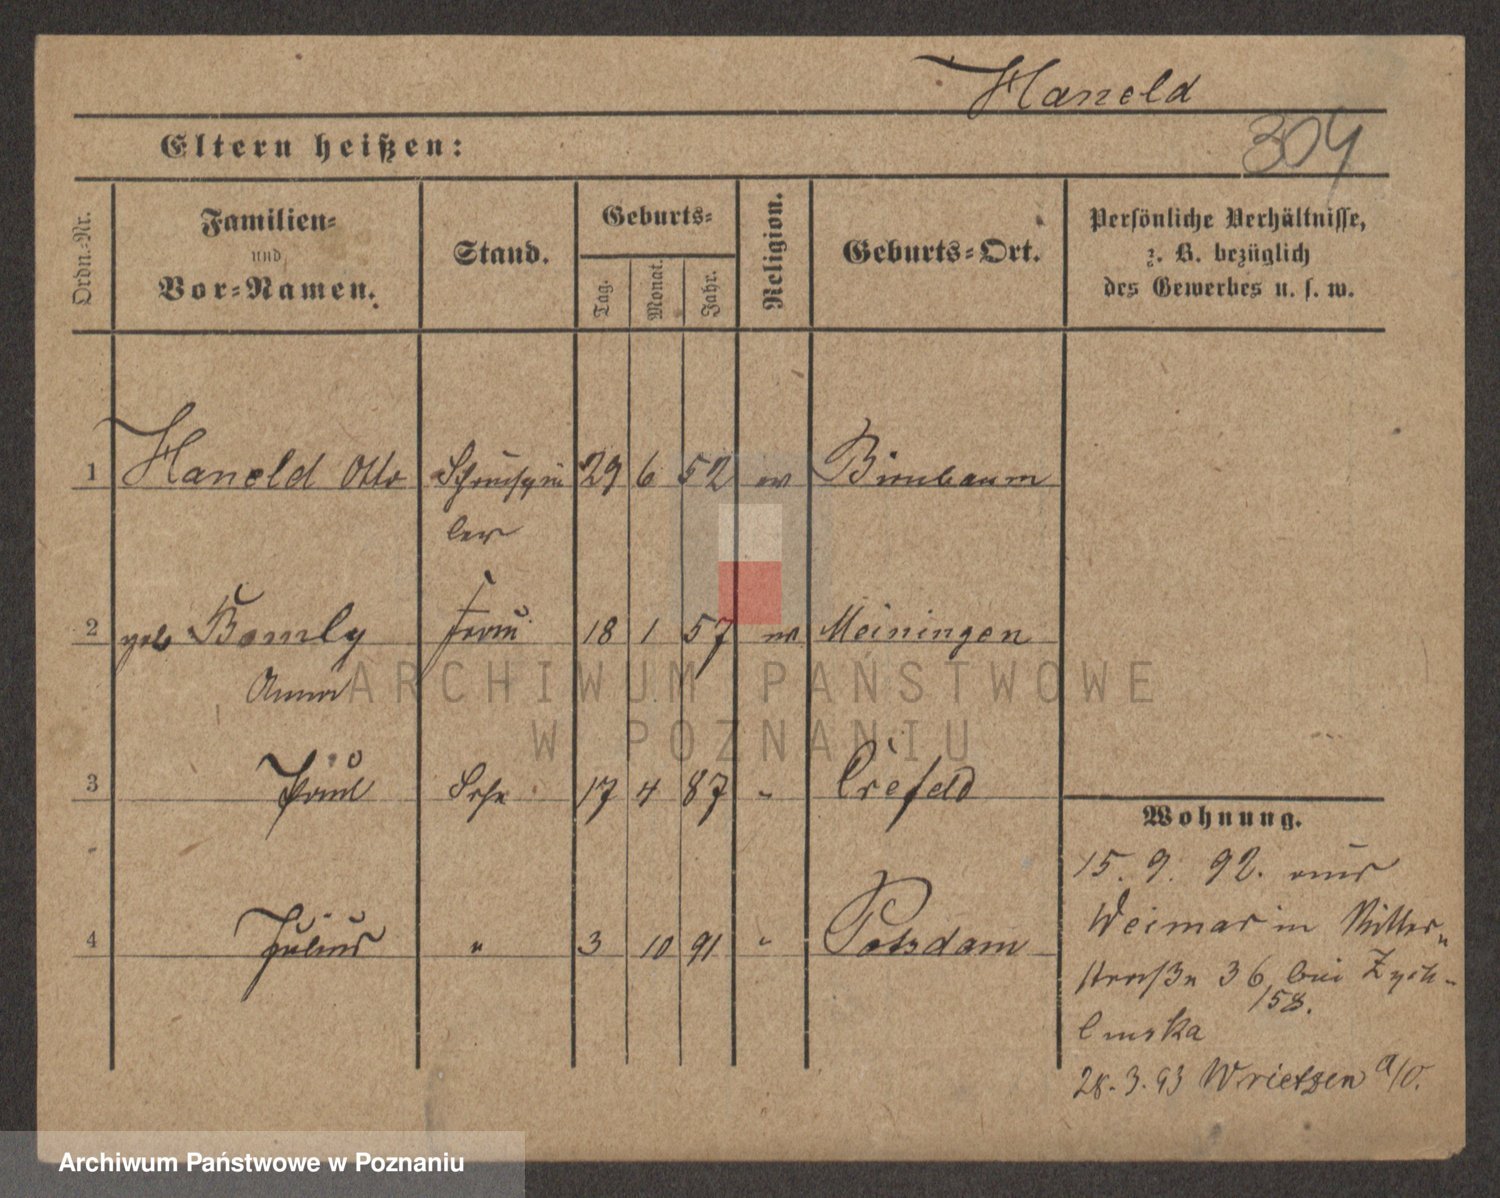 Haneld
304
Eltern heißen:
Ordn.-Nr.
Familien-
und
Vor-Namen.
Stand.
Geburts-
Tag.
Monat.
Jahr.
Religion.
Geburts-Ort.
Persönliche Verhältnisse,
z. B. bezüglich
des Gewerbes u. s. w.
1 Haneld Otto Schauspie 29 6 52 ev Birnbaum
ler
2 geb Bomly Frau 18 1 57 ev Meiningen
Anna
3 Paul Sohn 17 4 87 " Crefeld
4 Julius " 3 10 91 " Potsdam
Wohnung.
15. 9. 92. aus
Weimar in Ritter-
straße 36, bei Zych-
158.
linska
28.3.93 Wrietzen a/O.
ARCHIWUM PAŃSTWOWE
W POZNANIU
Archiwum Państwowe w Poznaniu